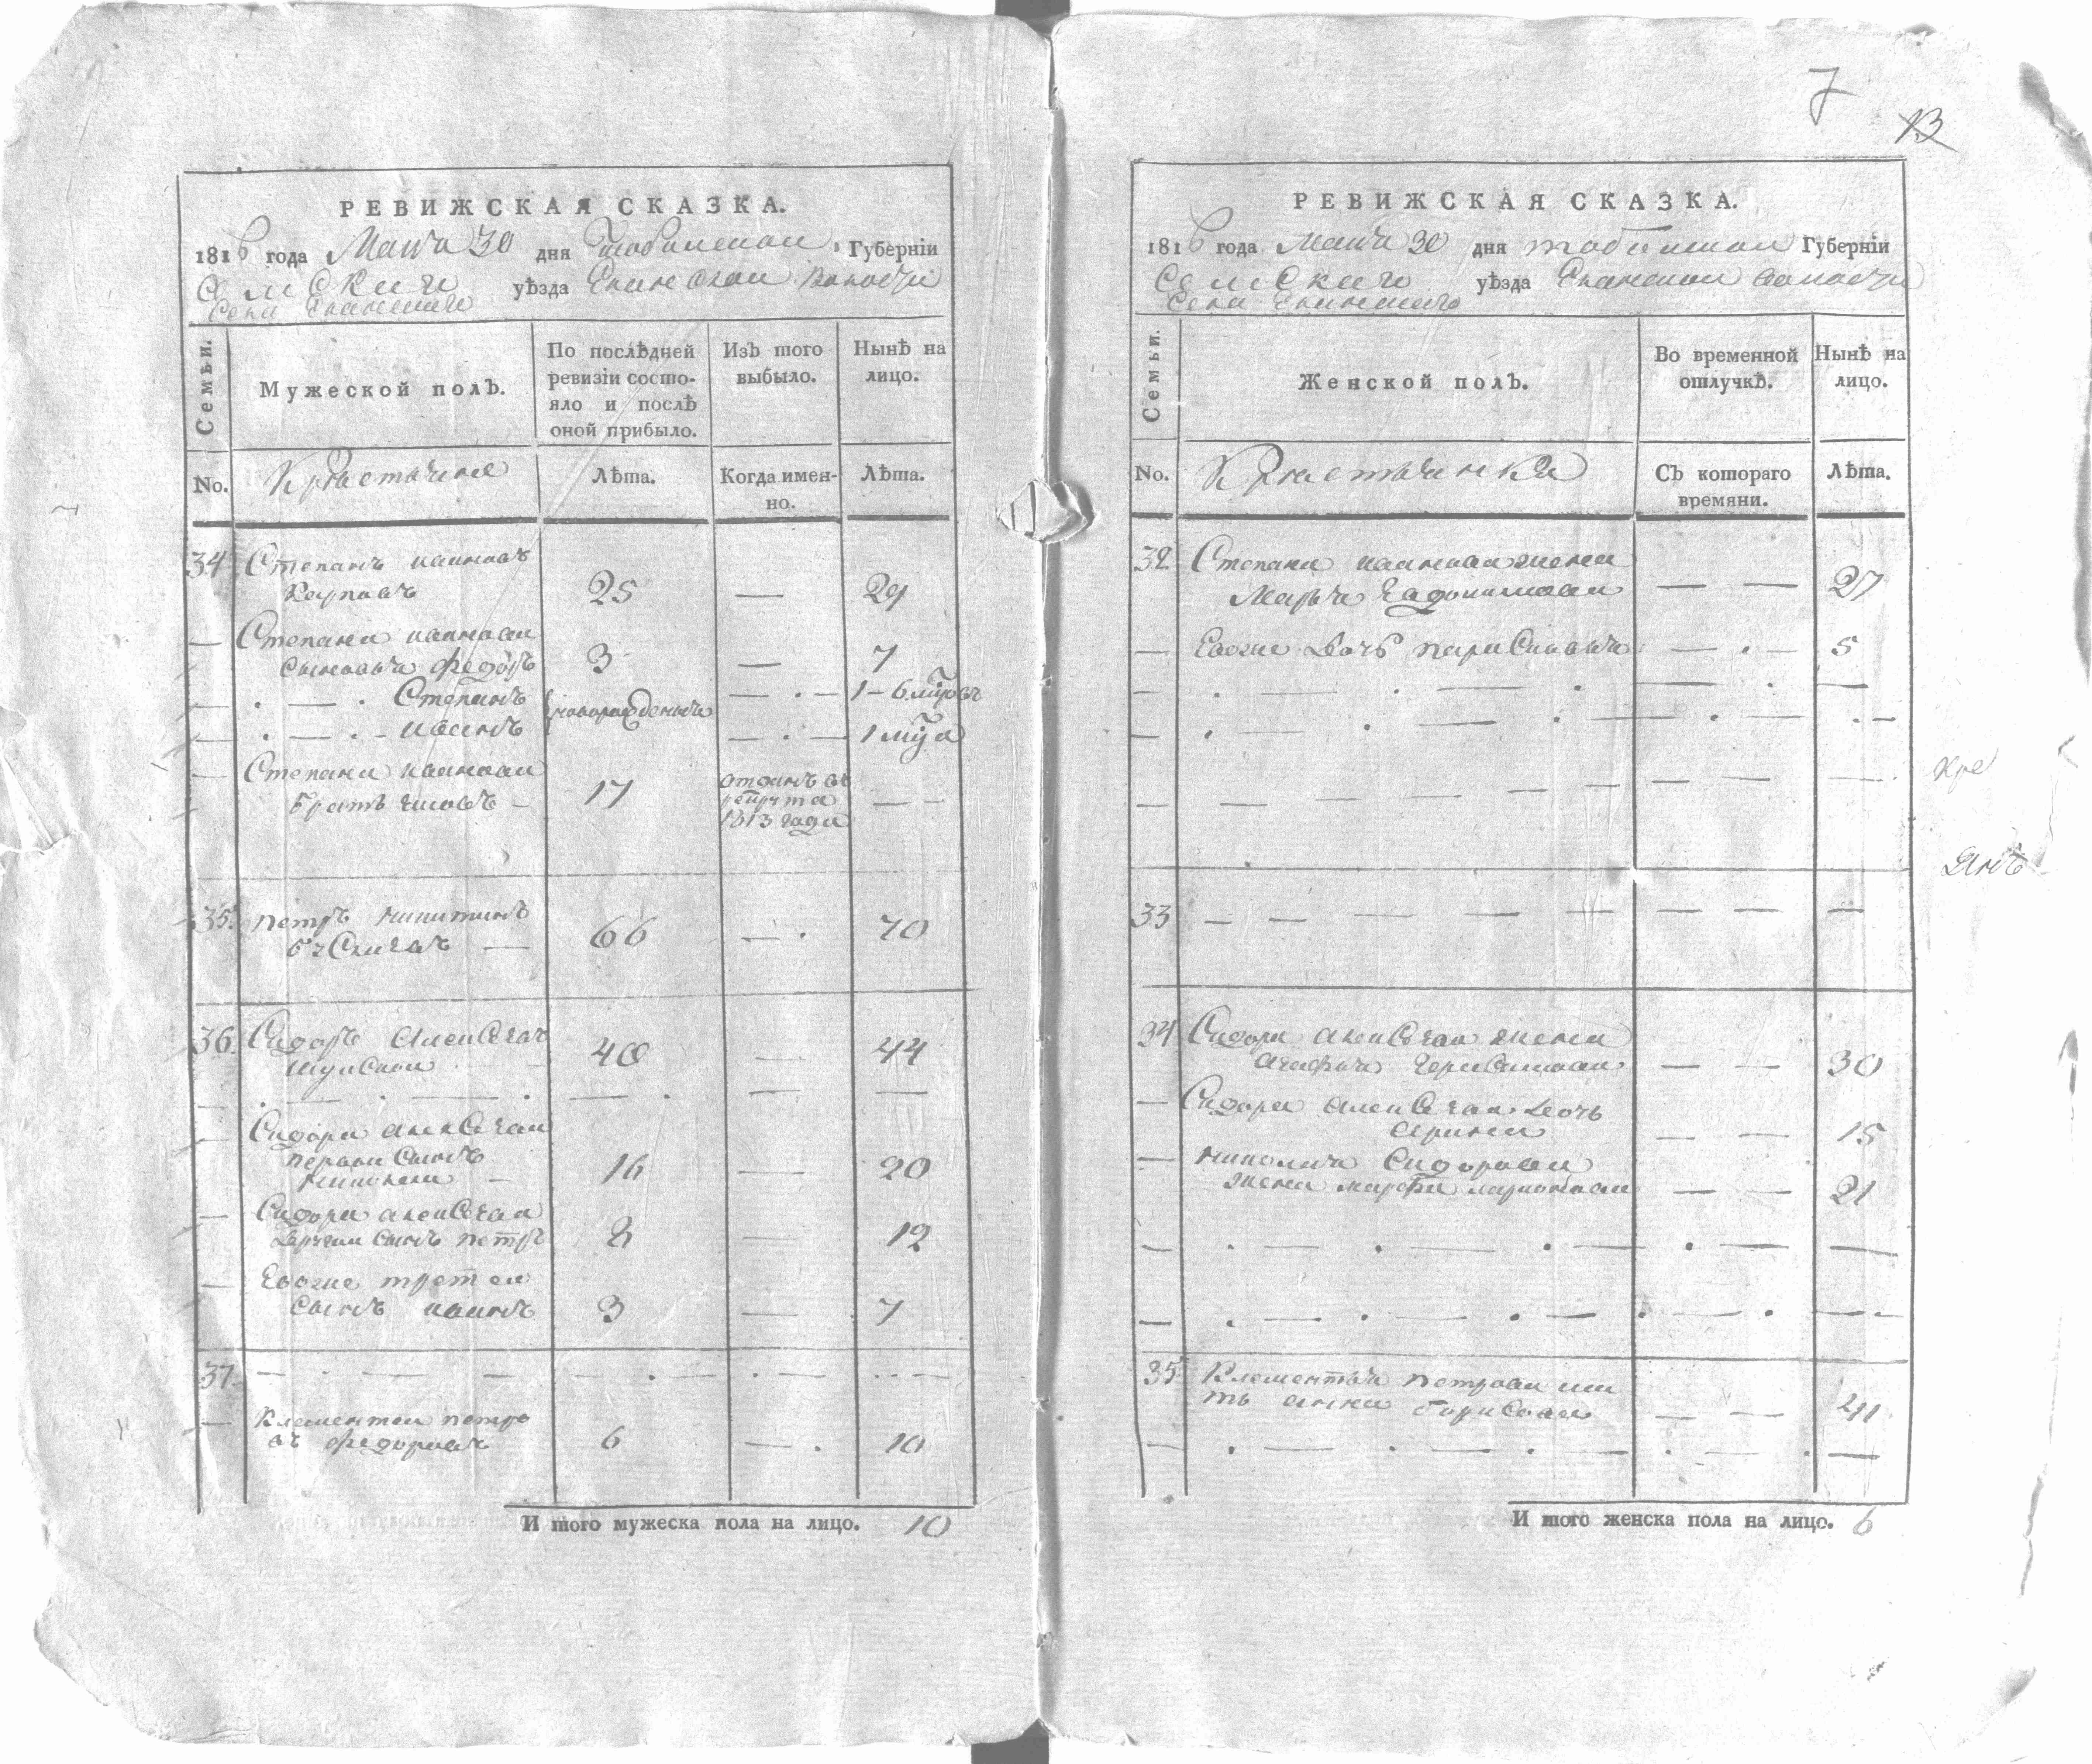 7
13
РЕВИЖСКАЯ СКАЗКА.
1816 года Маия 30 дня Тобольской Губерніи
Омскаго уѣзда Еланской Волости
Села Еланскаго
Семьи.
Мужеской полъ.
По послѣдней ревизіи состояло и послѣ оной прибыло.
Изъ того выбыло.
Нынѣ на лицо.
No.
Крестьяне
Лѣта.
Когда именно.
Лѣта.
34 Степанъ Ивановъ
Карповъ 25 — 29
— Степана Иванова
сыновья Федоръ 3 — 7
— Степанъ новорожденныя — 1 - 6 мцовъ
— Иванъ — 1 мца
— Степана Иванова
братъ 17 отданъ въ рекруты 1813 года — —
35. Петръ Никитинъ
66 — 70
36. Сидоръ Алексѣевъ
40 — 44
Сидора Алексѣева
первой сынъ
Николай 16 — 20
— Сидора Алексѣева
другой сынъ Петръ 8 — 12
— Евоже третей
сынъ Иванъ 3 — 7
37.
— Клементей Петро
въ Федоровъ 6 — 10
И того мужеска пола на лицо. 10
РЕВИЖСКАЯ СКАЗКА.
1816 года Маия 30 дня Тобольской Губерніи
Омскаго уѣзда Еланской Волости
Села Еланскаго
Семьи.
Женской полъ.
Во временной отлучкѣ.
Нынѣ на лицо.
No.
Крестьянки
Съ котораго времяни.
Лѣта.
32 Степана Иванова жена
Марья — — 27
— Евоже дочь Парасковья — 5
33
34 Сидора Алексѣева жена
Агафья Герасимова — — 30
— Сидора Алексѣева дочь
Арина — — 15
— Николая Сидорова
жена Марфа Ларионова — — 21
35 Клементья Петрова ма
ть Анна Борисова — — 41
И того женска пола на лицо. 6